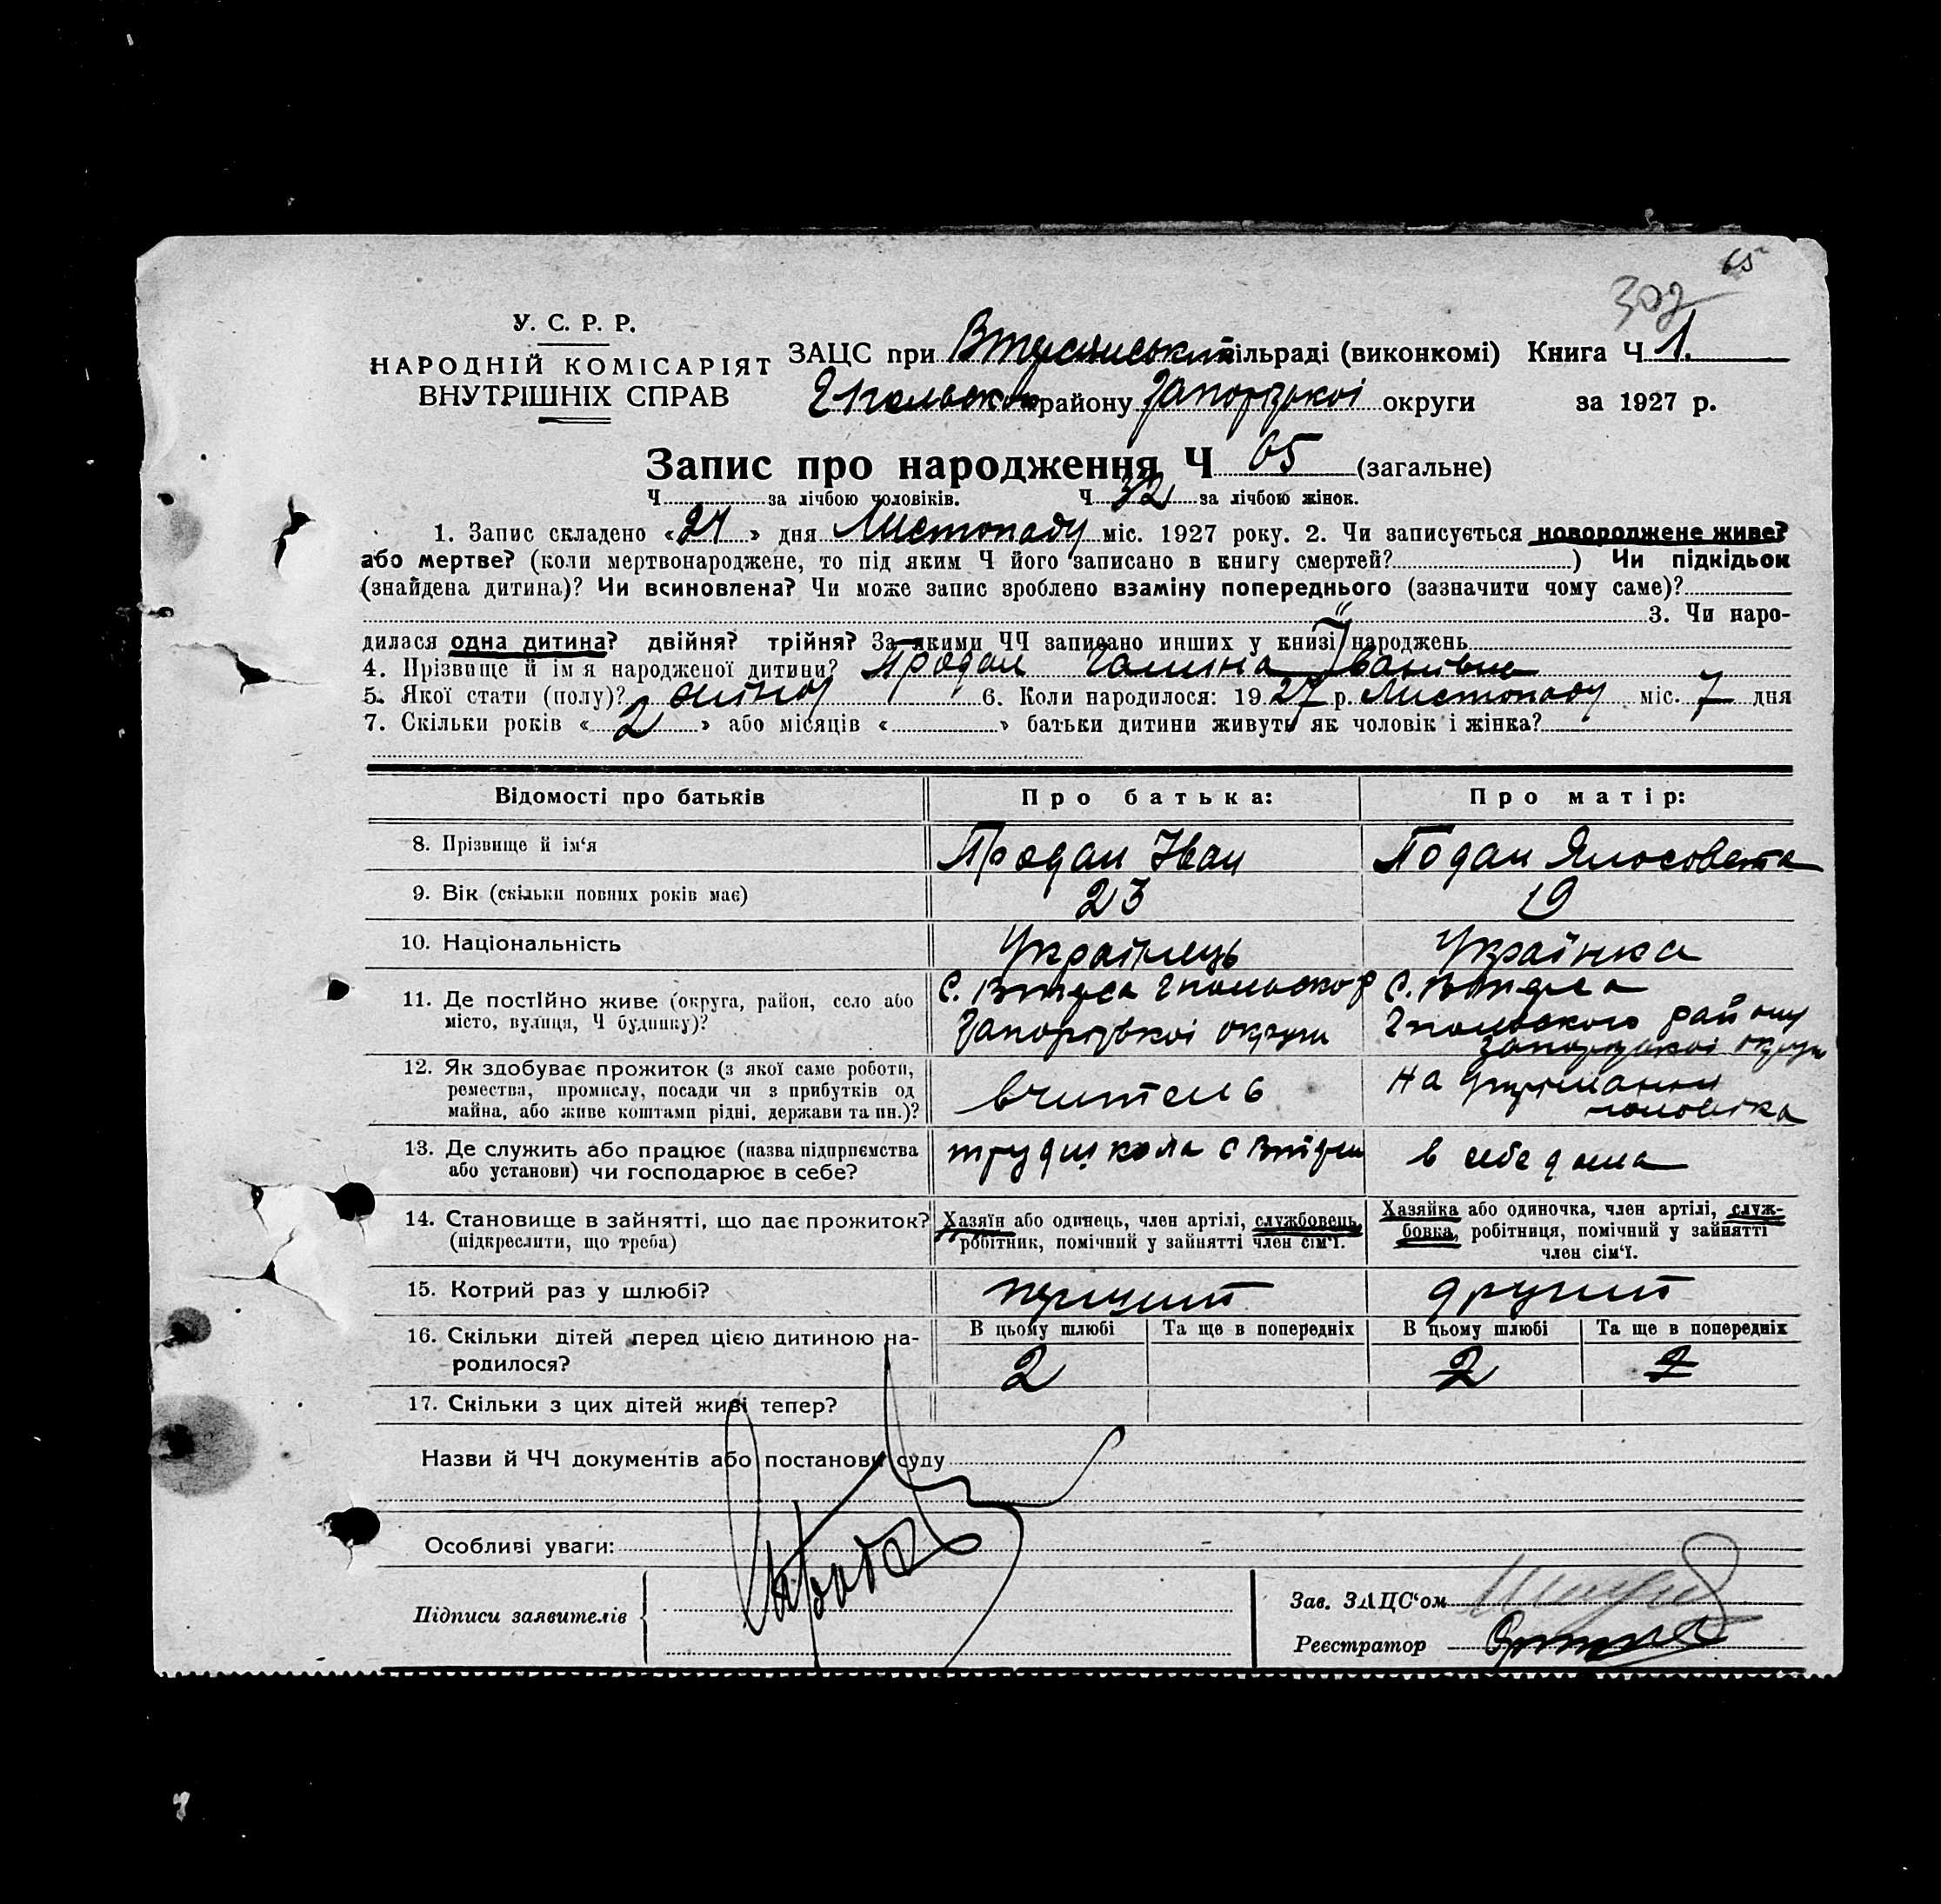 65
302
У. С. Р. Р.
НАРОДНІЙ КОМІСАРІЯТ
ВНУТРІШНІХ СПРАВ
ЗАЦС при сільраді (виконкомі) Книга Ч 1.
району Запорізької округи за 1927 р.
Запис про народження Ч 65 (загальне)
Ч за лічбою чоловіків. Ч 32 за лічбою жінок.
1. Запис складено «21» дня Листопаду міс. 1927 року. 2. Чи записується новороджене живе?
або мертве? (коли мертвонароджене, то під яким Ч його записано в книгу смертей? ) Чи підкідьок
(знайдена дитина)? Чи всиновлена? Чи може запис зроблено взаміну попереднього (зазначити чому саме)?
3. Чи наро-
дилася одна дитина? двійня? трійня? За якими ЧЧ записано инших у книзі народжень
4. Прізвище й ім я народженої дитини? Продан Галина Іванівна
5. Якої стати (полу)? жіноч 6. Коли народилося: 1927 р. Листопаду міс. 7 дня
7. Скільки років « 2 » або місяців « » батьки дитини живуть як чоловік і жінка?
Відомості про батьків Про батька: Про матір:
8. Прізвище й ім'я Продан Іван Подан
9. Вік (скільки повних років має) 23 19
10. Національність Українець Українка
11. Де постійно живе (округа, район, село або
місто, вулиця, Ч будинку)?
С.
Запорізької округи
С.
району
Запорізької округи
12. Як здобуває прожиток (з якої саме роботи,
ремества, промислу, посади чи з прибутків од
майна, або живе коштами рідні, держави та ин.)?
вчитель
на утриманні
чоловіка
13. Де служить або працює (назва підприємства
або установи) чи господарює в себе?
трудшкола с
в себе дома
14. Становище в зайнятті, що дає прожиток?
(підкреслити, що треба)
Хазяїн або одинець, член артілі, службовець,
робітник, помічний у зайнятті член сім'ї.
Хазяйка або одиночка, член артілі, служ-
бовка, робітниця, помічний у зайнятті
член сім'ї.
15. Котрий раз у шлюбі? перший другий
16. Скільки дітей перед цією дитиною на-
родилося?
В цьому шлюбі Та ще в попередніх В цьому шлюбі Та ще в попередніх
2 2 2
17. Скільки з цих дітей живі тепер?
Назви й ЧЧ документів або постанови суду
Особливі уваги:
Підписи заявителів
Зав. ЗАЦС'ом
Реєстратор